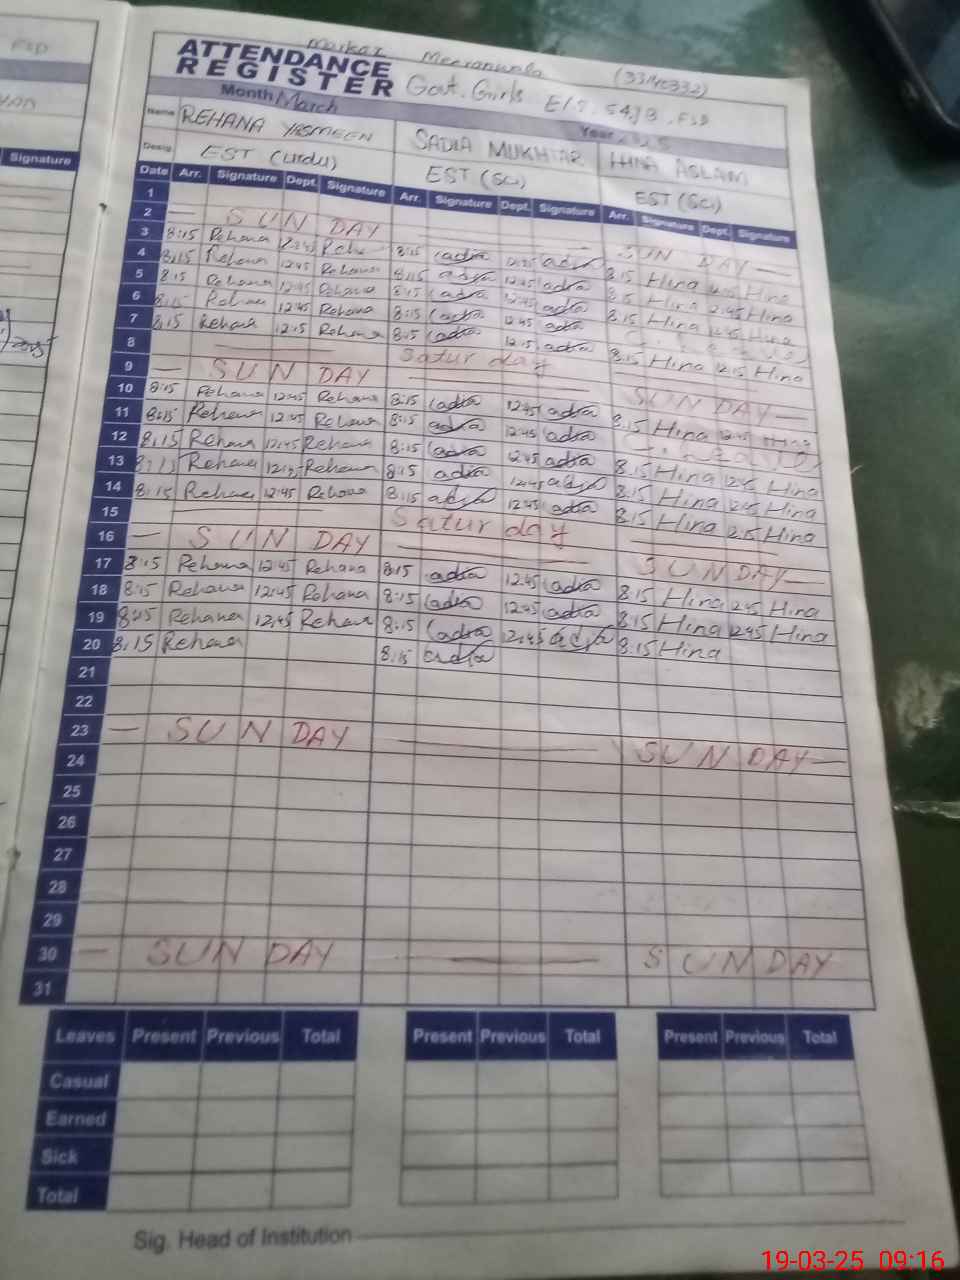 Markaz Meeranwala (33140332)
ATTENDANCE REGISTER Govt. Girls E/S. 54JB, FSD
Month March Year
Name REHANA YASMEEN SADIA MUKHTAR HINA ASLAM
Desig EST (Urdu) EST (Sci) EST (Sci)
Date Arr. Signature Dept. Signature Arr. Signature Dept. Signature Arr. Signature Dept. Signature
1
2 — SUNDAY SUNDAY —
3 8:15 Rehana 12:45 8:15 12:45 8:15 Hina 12:45 Hina
4 8:15 Rehana 12:45 Rehana 8:15 12:45 8:15 Hina 12:45 Hina
5 8:15 Rehana 12:45 Rehana 8:15 12:45 8:15 Hina 12:45 Hina
6 8:15 Rehana 12:45 Rehana 8:15 12:45
7 8:15 Rehana 12:15 Rehana 8:15 12:15 8:15 Hina 12:15 Hina
8 Saturday
9 — SUNDAY SUNDAY —
10 8:15 Rehana 12:45 Rehana 8:15 12:45 8:15 Hina 12:45 Hina
11 8:15 Rehana 12:45 Rehana 8:15 12:45
12 8:15 Rehana 12:45 Rehana 8:15 12:45 8:15 Hina 12:45 Hina
13 8:15 Rehana Rehana 8:15 12:45 8:15 Hina 12:45 Hina
14 8:15 Rehana 12:45 Rehana 8:15 12:45 8:15 Hina 12:15 Hina
15 Saturday
16 — SUNDAY SUNDAY —
17 8:15 Rehana 12:45 Rehana 8:15 12:45 8:15 Hina 12:45 Hina
18 8:15 Rehana 12:45 Rehana 8:15 12:45 8:15 Hina 12:45 Hina
19 8:15 Rehana 12:45 Rehana 8:15 12:45 8:15 Hina
20 8:15 Rehana 8:15
21
22
23 — SUNDAY SUNDAY —
24
25
26
27
28
29
30 — SUNDAY SUNDAY
31
Leaves Present Previous Total Present Previous Total Present Previous Total
Casual
Earned
Sick
Total
Sig. Head of Institution
Signature
19-03-25 09:16